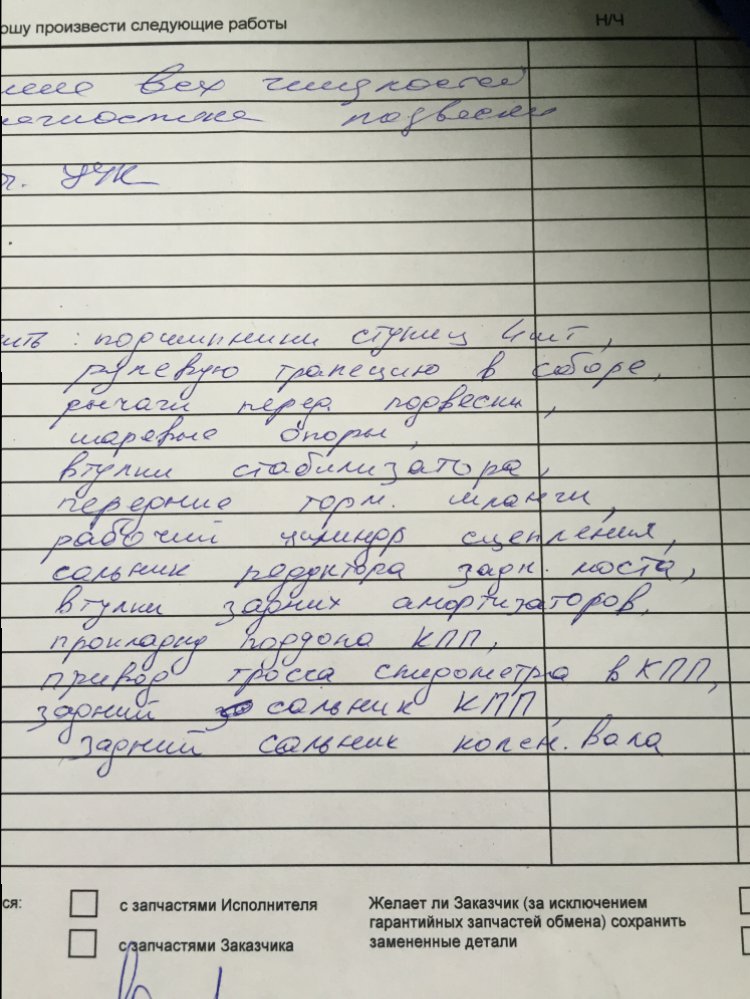 ошу произвести следующие работы Н/Ч
мена всех жидкостей
иагностика подвески
ить : подшипники ступиц 4шт,
рулевую трапецию в сборе,
рычаги перед подвески,
шаровые опоры,
втулки стабилизатора,
передние торм. шланги,
рабочий цилиндр сцепления,
сальник редуктора задн. моста,
втулки задних амортизаторов,
прокладку поддона КПП,
привод тросса спидометра в КПП,
задний сальник КПП
задний сальник колен. вала
ся:
с запчастями Исполнителя
с запчастями Заказчика
Желает ли Заказчик (за исключением
гарантийных запчастей обмена) сохранить
замененные детали